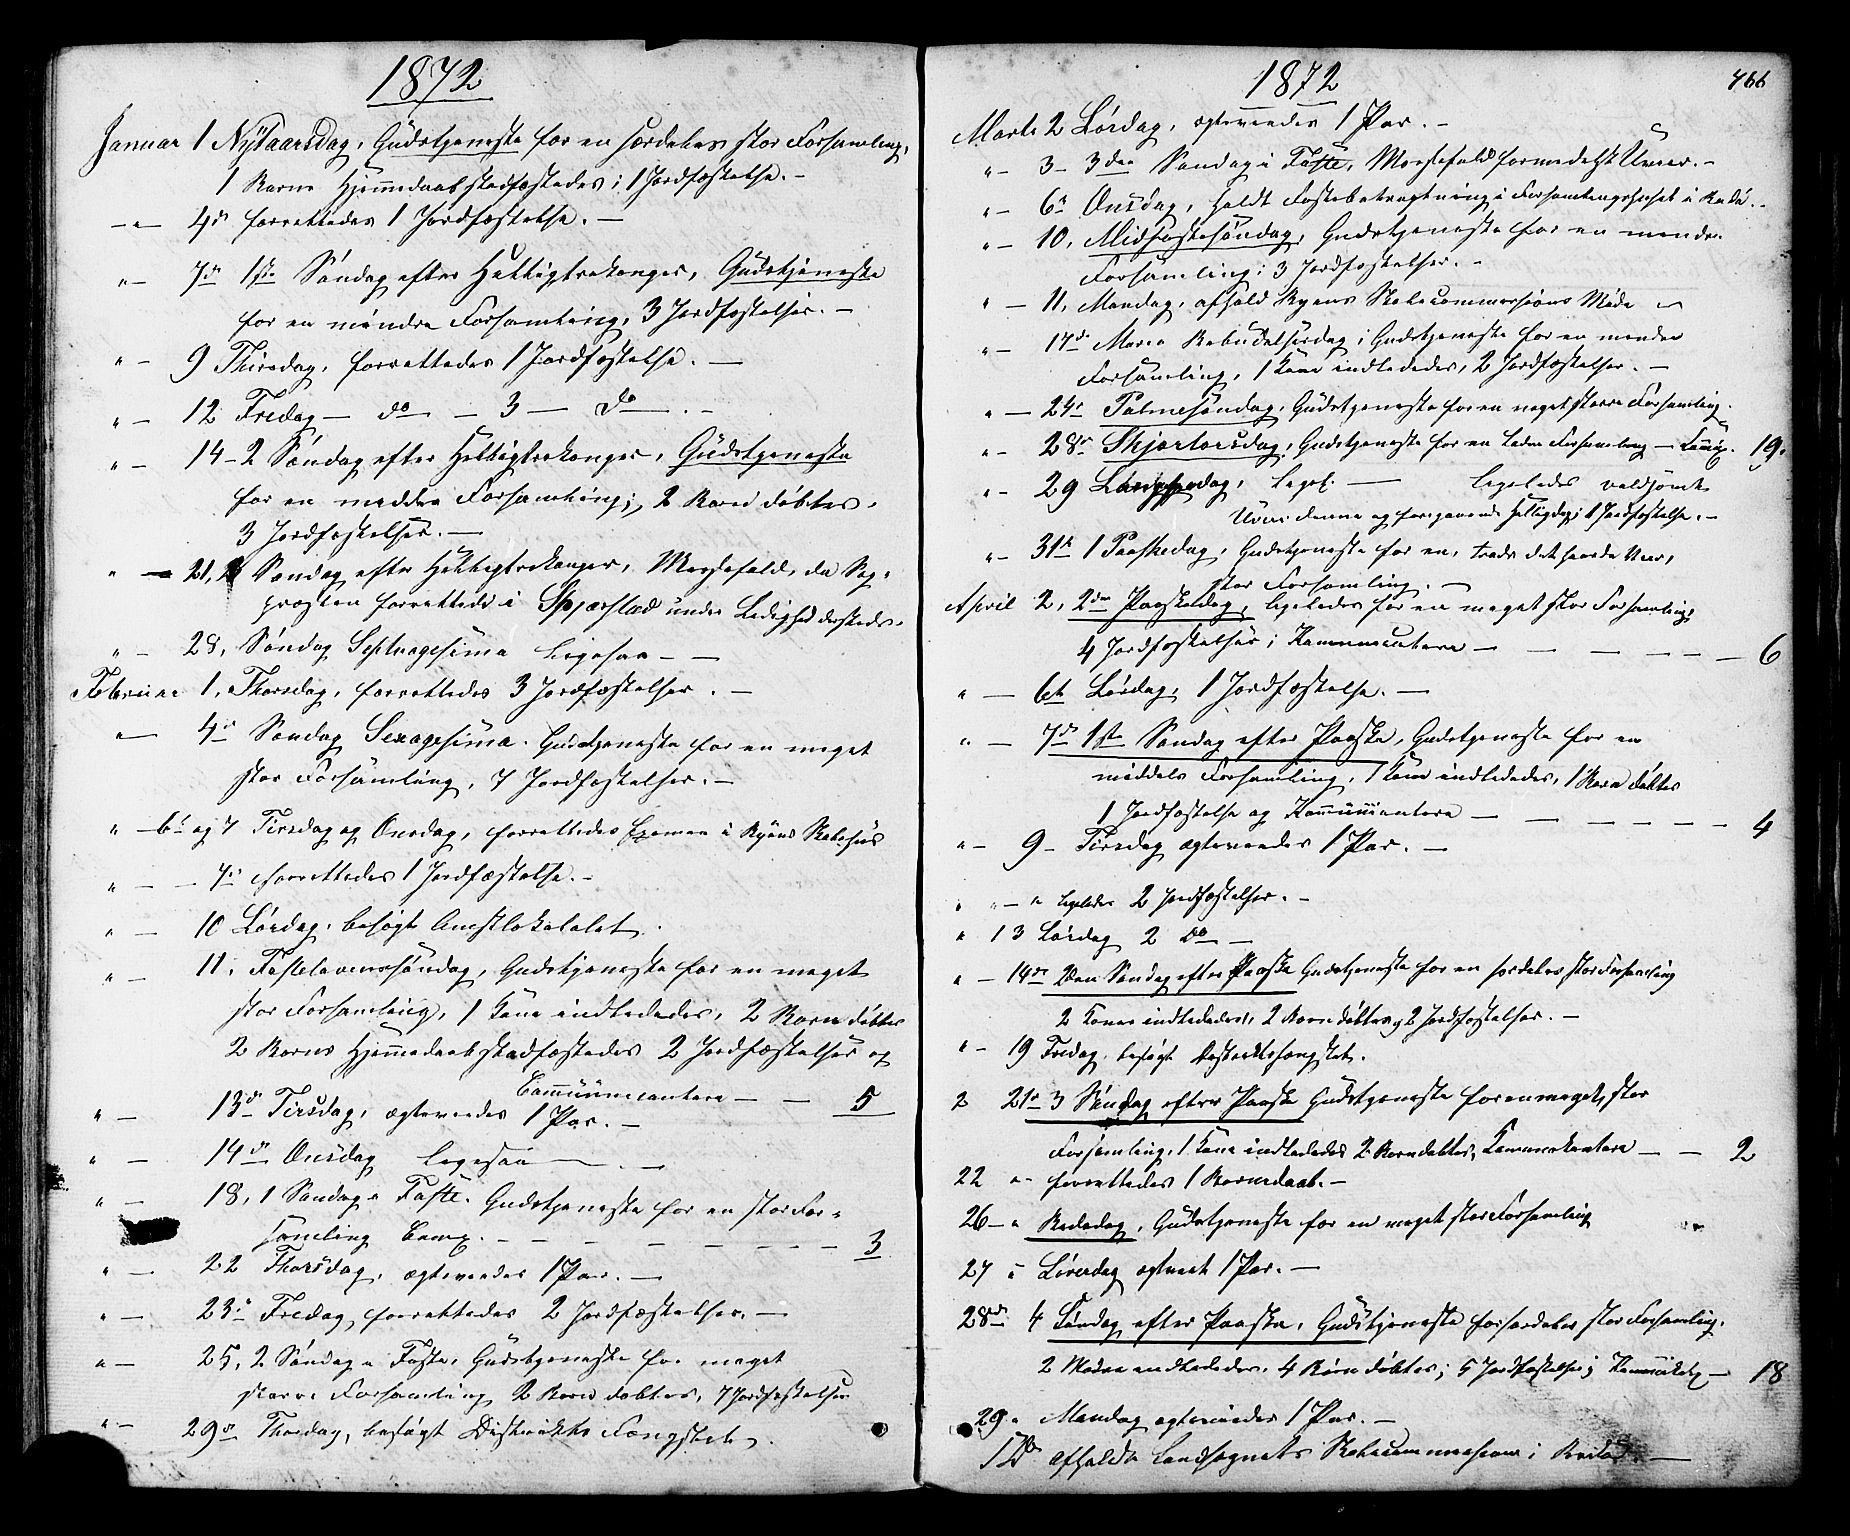 1872
Januar 1 Nÿtaarsdag, Gudstjeneste for en særdeles stor Forsamling,
1 Barns Hjemmedaab stadfæstedes; 1 Jordfæstelse. –
– " – 4de forrettedes 1 Jordfæstelse. –
" – 7de 1ste Søndag efter Helligtrekonger, Gudstjeneste
for en mindre Forsamling, 3 Jordfæstelser. –
" – 9 Thirsdag, forrettedes 1 Jordfæstelse. –
" – 12 Fredag – do – 3 – Do. –
" – 14 – 2 Søndag efter Helligtrekonger, Gudstjeneste
for en middels Forsamling; 2 Børn døbtes,
3 Jordfæstelser. –
" – 21, Søndag efter Helligtrekonger, Messefald, da Sog-
præsten forrettede i under Ledighed
" – 28, Søndag Septuagesima Ligesaa – –
Februar 1, Thorsdag, forrettedes 3 Jordfæstelser. –
" – 4de Søndag Sexagesima. Gudstjeneste for en meget
stor Forsamling, 7 Jordfæstelser. –
" – 6te og 7 Tirsdag og Onsdag, forrettedes Examen i Skolehus
" – – 7de forrettedes 1 Jordfæstelse. –
" – 10 Lørdag, besøgt Amstlokalet.
" – 11. Fastelavenssøndag, Gudstjeneste for en meget
stor Forsamling, 1 Kone indlededes, 2 Børn døbtes
2 Børns Hjemmedaab stadfæstedes 2 Jordfæstelser og
Communicantere – – 5
" – 13de Tirsdag, ægteviedes 1 Par. –
" – 14de Onsdag ligesaa –. –
" – 18, 1 Søndag i Faste. Gudstjeneste for en stor For-
samling Comm. – – – – – – 3
" – 22 Thorsdag, ægteviedes 1 Par. –
" – 23de Fredag, forrettedes 2 Jordfæstelser. –
" – 25, 2 Søndag i Faste, Gudstjeneste for meget
større Forsamling 2 Børn døbtes, 7 Jordfæstelser
" – 29de Thorsdag, besøgt Distrikts Fængslet.
1872
466
Marts 2 Lørdag, ægteviedes 1 Par. –
" – 3 – 3die Søndag i Faste, Messefald formedelst Uveir. –
" – 6te Onsdag, holdt Fastebetragtning i Forsamlingshuset i
" – 10, Midfastesøndag, Gudstjeneste for en mindre
Forsamling; 3 Jordfæstelser. –
" – 11, Mandag, afhold Skolecommissions Møde –
" – 17de Maria Bebudelsesdag; Gudstjeneste for en mindre
Forsamling, 1 Kone indlededes, 2 Jordfæstelser. –
" – 24de Palmesøndag, Gudstjeneste for en meget større Forsamling.
" – 28de Skjærtorsdag, Gudstjeneste for en Forsamling – Comm. 19.
" – 29 Langfredag, –
Uveir denne og foregaaende Helligdag; 1 Jordfæstelse. –
" – 31te 1 Paaskedag, Gudstjeneste for en, trods det haarde Veir,
stor Forsamling. –
April 2, 2den Paaskedag, ligeledes for en meget stor Forsamling;
4 Jordfæstelser; Kommunicantere – – – – – – 6
" – 6te Lørdag, 1 Jordfæstelse. –
" – 7de 1ste Søndag efter Paaske, Gudstjeneste for en
middels Forsamling, 1 Kone indlededes, 1 Barn døbtes
1 Jordfæstelse og Kommunicantere – – – – – – 4
" – 9 – Tirsdag ægteviedes 1 Par. –
" " – " ligeledes 2 Jordfæstelser. –
" 13 Lørdag 2 Do –
" – 14de 2den Søndag efter Paaske Gudstjeneste for en særdeles stor Forsamling
2 Koner indlededes, 2 Børn døbtes og 2 Jordfæstelser. –
" – 19 Fredag, besøgt
21de 3 Søndag efter Paaske Gudstjeneste for en meget stor
Forsamling, 1 Kone indlededes 2 Børn døbtes, Kommunikantere – – 2
22 " forrettedes 1 Barnedaab. –
26 – " Bededag, Gudstjeneste for en meget stor Forsamling
27 " Løverdag ægteviet 1 Par. –
28de 4 Søndag efter Paaske, Gudstjeneste for særdeles stor Forsamling,
2 indlededes, 4 Børn døbtes; 5 Jordfæstelser; – 18
29 " Mandag ægteviedes 1 Par. –
Do afholdt Landsognets Skolecommission i –